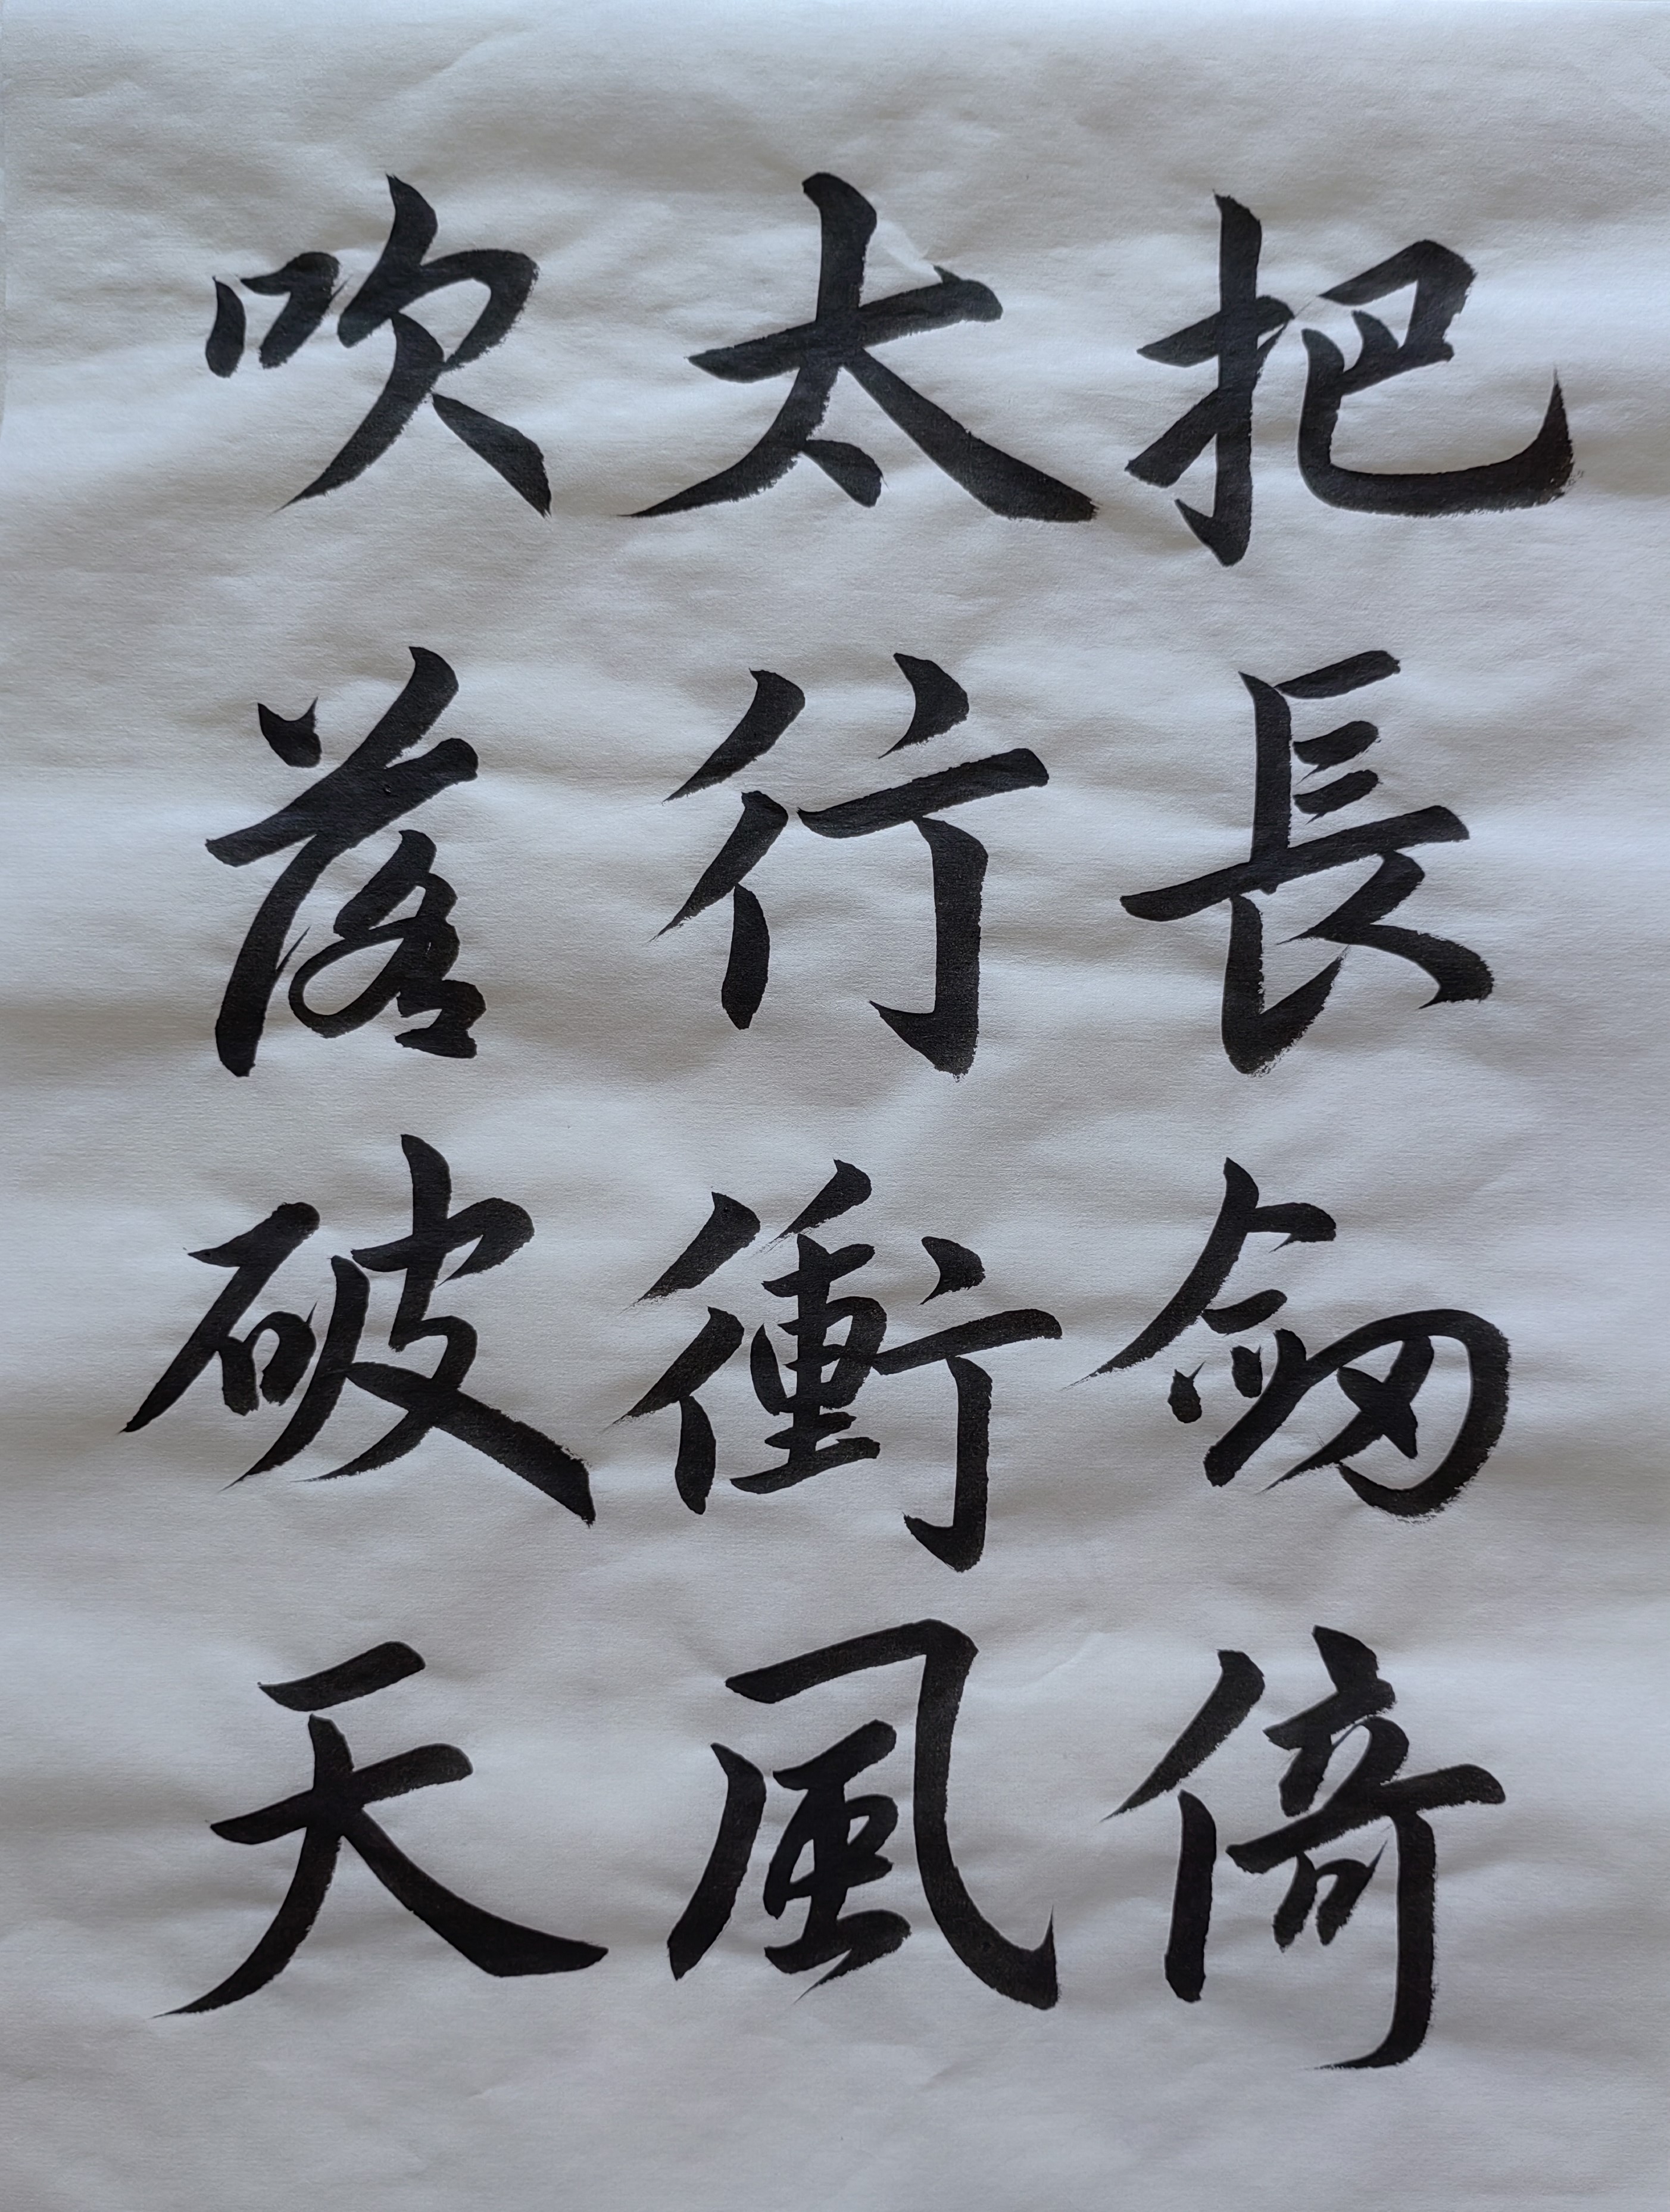 把長劒倚
太行衝風
吹落破天